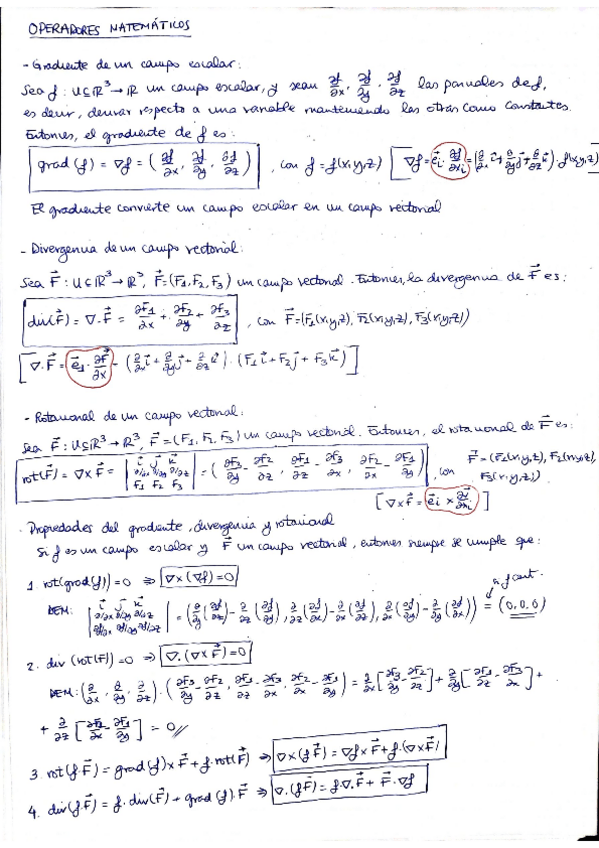 OPERADORES MATEMÁTICOS
- Gradiente de un campo escalar:
Sea f : U⊆ℝ³→ℝ un campo escalar, y sean ∂f/∂x, ∂f/∂y, ∂f/∂z las parciales de f,
es decir, derivar respecto a una variable manteniendo las otras como constantes.
Entonces, el gradiente de f es:
grad (f) = ∇f = (∂f/∂x, ∂f/∂y, ∂f/∂z) , con f = f(x,y,z) [∇f = e⃗i · ∂f/∂xi = (∂/∂x i⃗ + ∂/∂y j⃗ + ∂/∂z k⃗) · f(x,y,z)]
El gradiente convierte un campo escalar en un campo vectorial
- Divergencia de un campo vectorial:
Sea F⃗ : U⊆ℝ³→ℝ³, F⃗=(F1,F2,F3) un campo vectorial. Entonces, la divergencia de F⃗ es:
div(F⃗) = ∇·F⃗ = ∂F1/∂x + ∂F2/∂y + ∂F3/∂z , con F⃗=(F1(x,y,z), F2(x,y,z), F3(x,y,z))
[∇·F⃗ = e⃗1 · ∂F⃗/∂x = (∂/∂x i⃗ + ∂/∂y j⃗ + ∂/∂z k⃗) · (F1 i⃗ + F2 j⃗ + F3 k⃗)]
- Rotacional de un campo vectorial:
Sea F⃗ : U⊆ℝ³→ℝ³, F⃗=(F1, F2, F3) un campo vectorial. Entonces, el rotacional de F⃗ es:
rot(F⃗) = ∇×F⃗ = | i⃗ j⃗ k⃗ ; ∂/∂x ∂/∂y ∂/∂z ; F1 F2 F3 | = (∂F3/∂y - ∂F2/∂z, ∂F1/∂z - ∂F3/∂x, ∂F2/∂x - ∂F1/∂y) , con F⃗=(F1(x,y,z), F2(x,y,z), F3(x,y,z))
[∇×F⃗ = e⃗i × ∂F⃗/∂xi]
- Propiedades del gradiente, divergencia y rotacional
Si f es un campo escalar y F⃗ un campo vectorial, entonces siempre se cumple que:
1. rot(grad(f)) = 0 ⇒ ∇×(∇f)=0
DEM: | i⃗ j⃗ k⃗ ; ∂/∂x ∂/∂y ∂/∂z ; ∂f/∂x ∂f/∂y ∂f/∂z | = (∂/∂y(∂f/∂z) - ∂/∂z(∂f/∂y), ∂/∂z(∂f/∂x) - ∂/∂x(∂f/∂z), ∂/∂x(∂f/∂y) - ∂/∂y(∂f/∂x)) = (0,0,0)
f cont.
2. div (rot(F⃗)) = 0 ⇒ ∇·(∇×F⃗)=0
DEM: (∂/∂x, ∂/∂y, ∂/∂z) · (∂F3/∂y - ∂F2/∂z, ∂F1/∂z - ∂F3/∂x, ∂F2/∂x - ∂F1/∂y) = ∂/∂x[∂F3/∂y - ∂F2/∂z] + ∂/∂y[∂F1/∂z - ∂F3/∂x] +
+ ∂/∂z[∂F2/∂x - ∂F1/∂y] = 0//
3. rot(f·F⃗) = grad(f)×F⃗ + f·rot(F⃗) ⇒ ∇×(fF⃗) = ∇f×F⃗ + f·(∇×F⃗)
4. div(f·F⃗) = f·div(F⃗) + grad(f)·F⃗ ⇒ ∇·(fF⃗) = f∇·F⃗ + F⃗·∇f